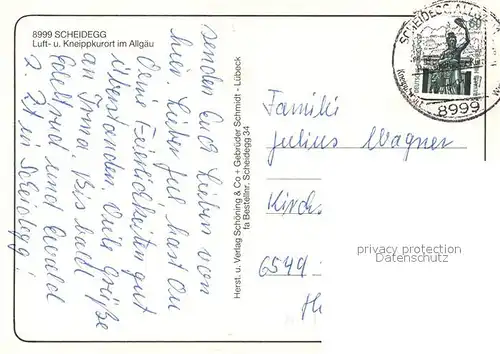 8999 SCHEIDEGG
Luft- u. Kneippkurort im Allgäu
senden Euch Lieben von
hier. Lieber Jul hast Du
Deine Feierlichkeiten gut
überstanden. Viele Grüße
an Irma. Bis bald
und Ewald
z. Zt in Scheidegg!
Herst. u. Verlag Schöning & Co + Gebrüder Schmidt - Lübeck
fa Bestellnr. Scheidegg 34
SCHEIDEGG
60
8999
Familie
Julius Wagner
Kirch
6549
privacy protection
Datenschutz